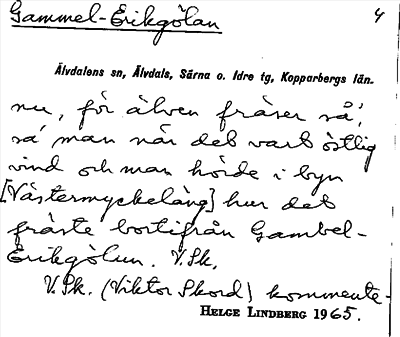 Gammel-Erikgölan
4
Älvdalens sn, Älvdals, Särna o. Idre tg, Kopparbergs län.
nu, för älven fräser så',
sa' man när det vart östlig
vind och man hörde i byn
[Västermyckeläng] hur det
fräste bortifrån Gambel-
Erikgölun. V. Sk.
V. Sk. (Viktor Skord) kommente-
HELGE LINDBERG 1965.